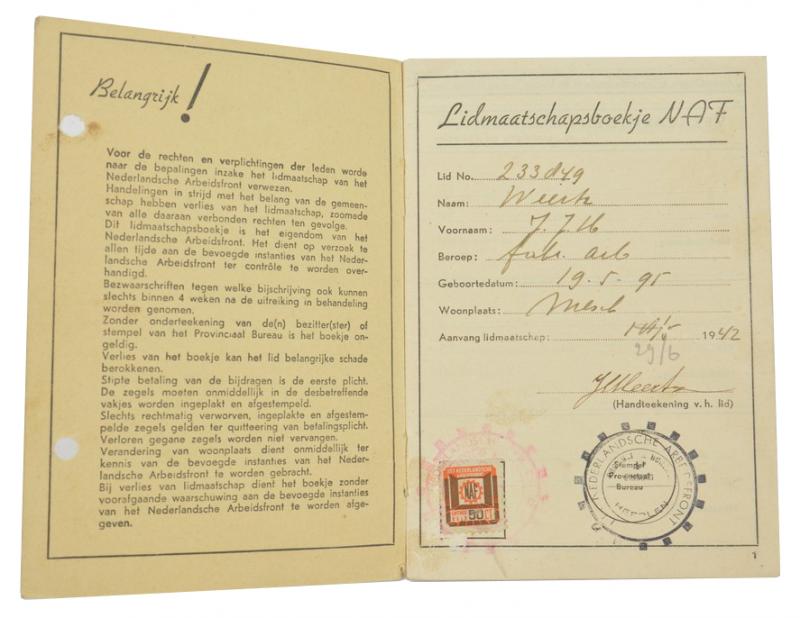 Belangrijk!
Voor de rechten en verplichtingen der leden worde
naar de bepalingen inzake het lidmaatschap van het
Nederlandsche Arbeidsfront verwezen.
Handelingen in strijd met het belang van de gemeen-
schap hebben verlies van het lidmaatschap, zoomede
van alle daaraan verbonden rechten ten gevolge.
Dit lidmaatschapsboekje is het eigendom van het
Nederlandsche Arbeidsfront. Het dient op verzoek te
allen tijde aan de bevoegde instanties van het Neder-
landsche Arbeidsfront ter contrôle te worden over-
handigd.
Bezwaarschriften tegen welke bijschrijving ook kunnen
slechts binnen 4 weken na de uitreiking in behandeling
worden genomen.
Zonder onderteekening van de(n) bezitter(ster) of
stempel van het Provinciaal Bureau is het boekje on-
geldig.
Verlies van het boekje kan het lid belangrijke schade
berokkenen.
Stipte betaling van de bijdragen is de eerste plicht.
De zegels moeten onmiddellijk in de desbetreffende
vakjes worden ingeplakt en afgestempeld.
Slechts rechtmatig verworven, ingeplakte en afgestem-
pelde zegels gelden ter quitteering van betalingsplicht.
Verloren gegane zegels worden niet vervangen.
Verandering van woonplaats dient onmiddellijk ter
kennis van de bevoegde instanties van het Neder-
landsche Arbeidsfront te worden gebracht.
Bij verlies van lidmaatschap dient het boekje zonder
voorafgaande waarschuwing aan de bevoegde instanties
van het Nederlandsche Arbeidsfront te worden afge-
geven.
Lidmaatschapsboekje NAF
Lid No.
Naam: Weerts
Voornaam: J. J. H
Beroep: fabr. arb
Geboortedatum: 19. 5. 95
Woonplaats: Mesch
Aanvang lidmaatschap: 1942
29/6
(Handteekening v. h. lid)
NAF
50 CT
NEDERLANDSCHE ARBEIDSFRONT
Stempel
Provinciaal
Bureau
HEERLEN
1